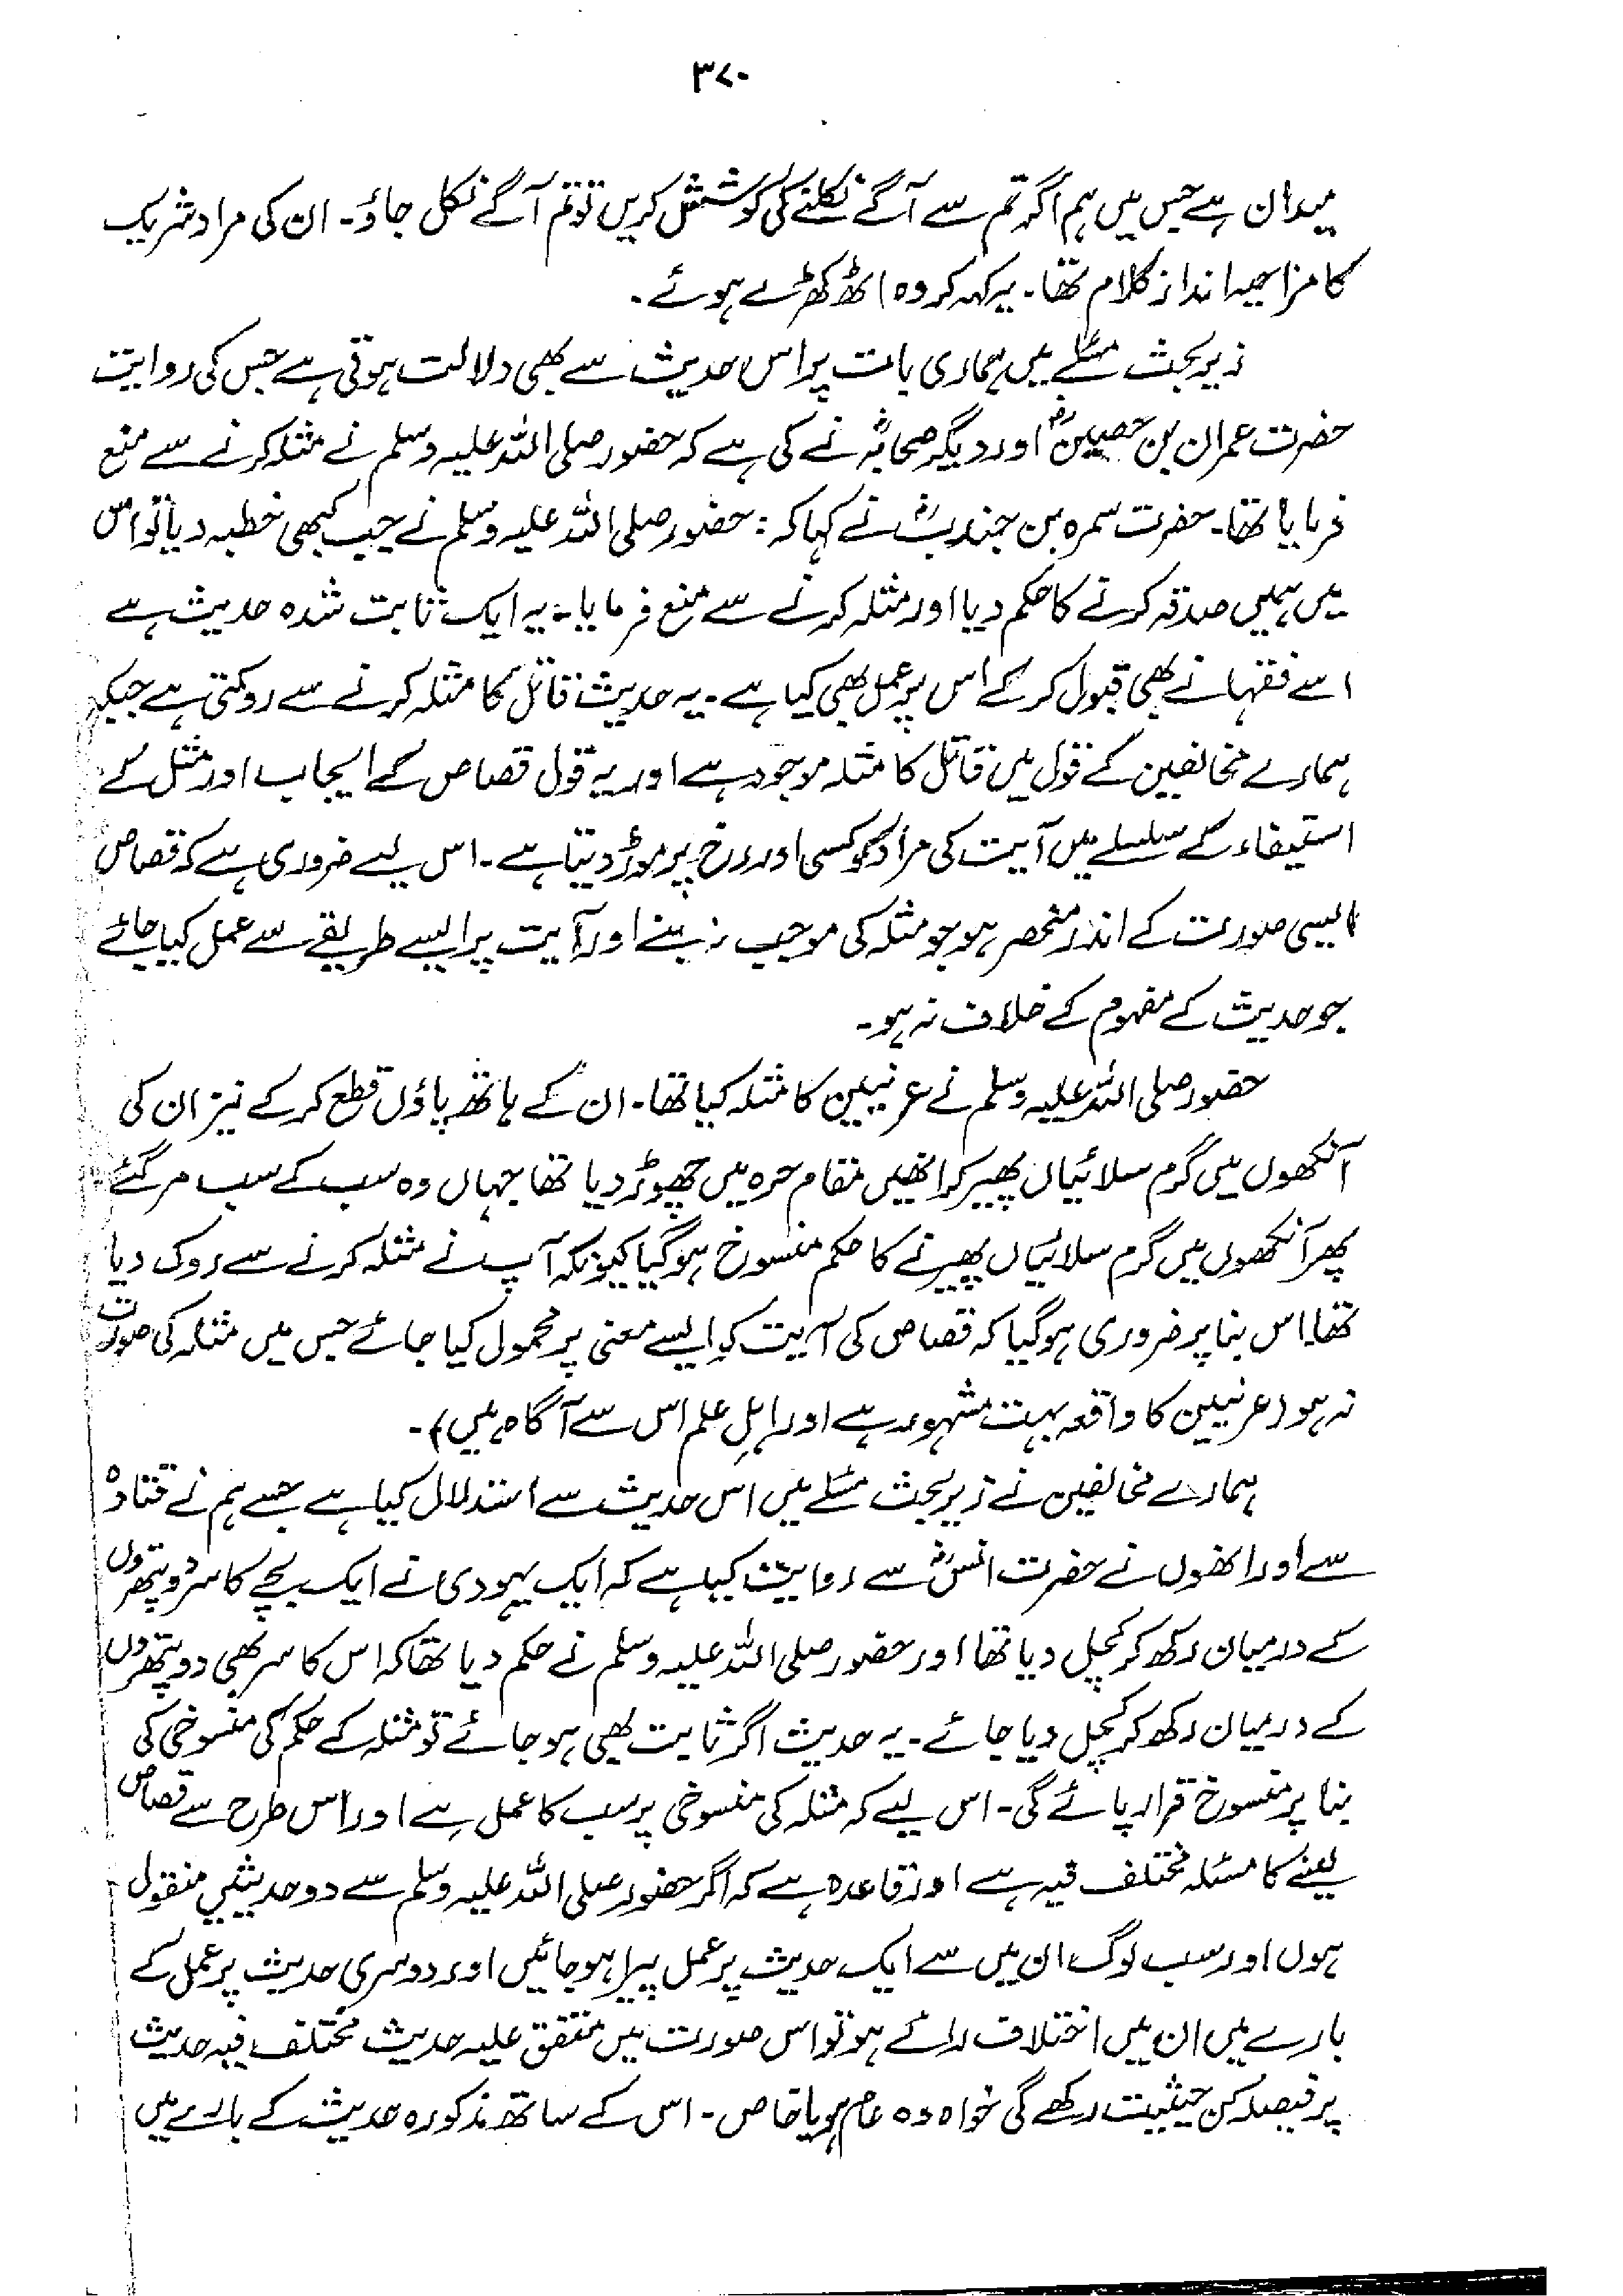 ۳۷۰
میدان ہے جس میں ہم اگر تم سے آگے نکلنے کی کوشش کریں تو تم آگے نکل جاؤ۔ ان کی مراد شریک
کا مزاحیہ انداز کلام تھا۔ یہ کہہ کر وہ اٹھ کھڑے ہوئے۔
زیر بحث مسئلے میں ہماری بات پر اس حدیث سے بھی دلالت ہوتی ہے جس کی روایت
حضرت عمران بن حصینؓ اور دیگر صحابہؓ نے کی ہے کہ حضور صلی اللہ علیہ وسلم نے مثلہ کرنے سے منع
فرمایا تھا۔ حضرت سمرہ بن جندبؓ نے کہا کہ: حضور صلی اللہ علیہ وسلم نے جب کبھی خطبہ دیا تو اس
میں ہمیں صدقہ کرنے کا حکم دیا اور مثلہ کرنے سے منع فرمایا۔ یہ ایک ثابت شدہ حدیث ہے
اسے فقہا نے بھی قبول کر کے اس پر عمل بھی کیا ہے۔ یہ حدیث قاتل کا مثلہ کرنے سے روکتی ہے جبکہ
ہمارے مخالفین کے قول میں قاتل کا مثلہ موجود ہے اور یہ قول قصاص کے ایجاب اور مثل کے
استیفاء کے سلسلے میں آیت کی مراد کو کسی اور رخ پر موڑ دیتا ہے۔ اس لیے ضروری ہے کہ قصاص
ایسی صورت کے اندر منحصر ہو جو مثلہ کی موجب نہ بنے اور آیت پر ایسے طریقے سے عمل کیا جائے
جو حدیث کے مفہوم کے خلاف نہ ہو۔
حضور صلی اللہ علیہ وسلم نے عرنیین کا مثلہ کیا تھا۔ ان کے ہاتھ پاؤں قطع کر کے نیز ان کی
آنکھوں میں گرم سلائیاں پھیر کر انھیں مقام حرہ میں چھوڑ دیا تھا جہاں وہ سب کے سب مر گئے۔
پھر آنکھوں میں گرم سلائیاں پھیرنے کا حکم منسوخ ہو گیا کیونکہ آپ نے مثلہ کرنے سے روک دیا
تھا۔ اس بنا پر ضروری ہو گیا کہ قصاص کی آیت کو ایسے معنی پر محمول کیا جائے جس میں مثلہ کی صورت
نہ ہو (عرنیین کا واقعہ بہت مشہور ہے اور اہلِ علم اس سے آگاہ ہیں)۔
ہمارے مخالفین نے زیر بحث مسئلے میں اس حدیث سے استدلال کیا ہے جسے ہم نے قتادہ
سے اور انھوں نے حضرت انسؓ سے روایت کیا ہے کہ ایک یہودی نے ایک بچے کا سر دو پتھروں
کے درمیان رکھ کر کچل دیا تھا اور حضور صلی اللہ علیہ وسلم نے حکم دیا تھا کہ اس کا سر بھی دو پتھروں
کے درمیان رکھ کر کچل دیا جائے۔ یہ حدیث اگر ثابت بھی ہو جائے تو مثلہ کے حکم کی منسوخی کی
بنا پر منسوخ قرار پائے گی۔ اس لیے کہ مثلہ کی منسوخی پر سب کا عمل ہے اور اس طرح سے قصاص
لینے کا مسئلہ مختلف فیہ ہے اور قاعدہ ہے کہ اگر حضور صلی اللہ علیہ وسلم سے دو حدیثیں منقول
ہوں اور سب لوگ ان میں سے ایک حدیث پر عمل پیرا ہو جائیں اور دوسری حدیث پر عمل کے
بارے میں ان میں اختلاف رائے ہو تو اس صورت میں متفق علیہ حدیث مختلف فیہ حدیث
پر فیصلہ کن حیثیت رکھے گی خواہ وہ عام ہو یا خاص۔ اس کے ساتھ مذکورہ حدیث کے بارے میں